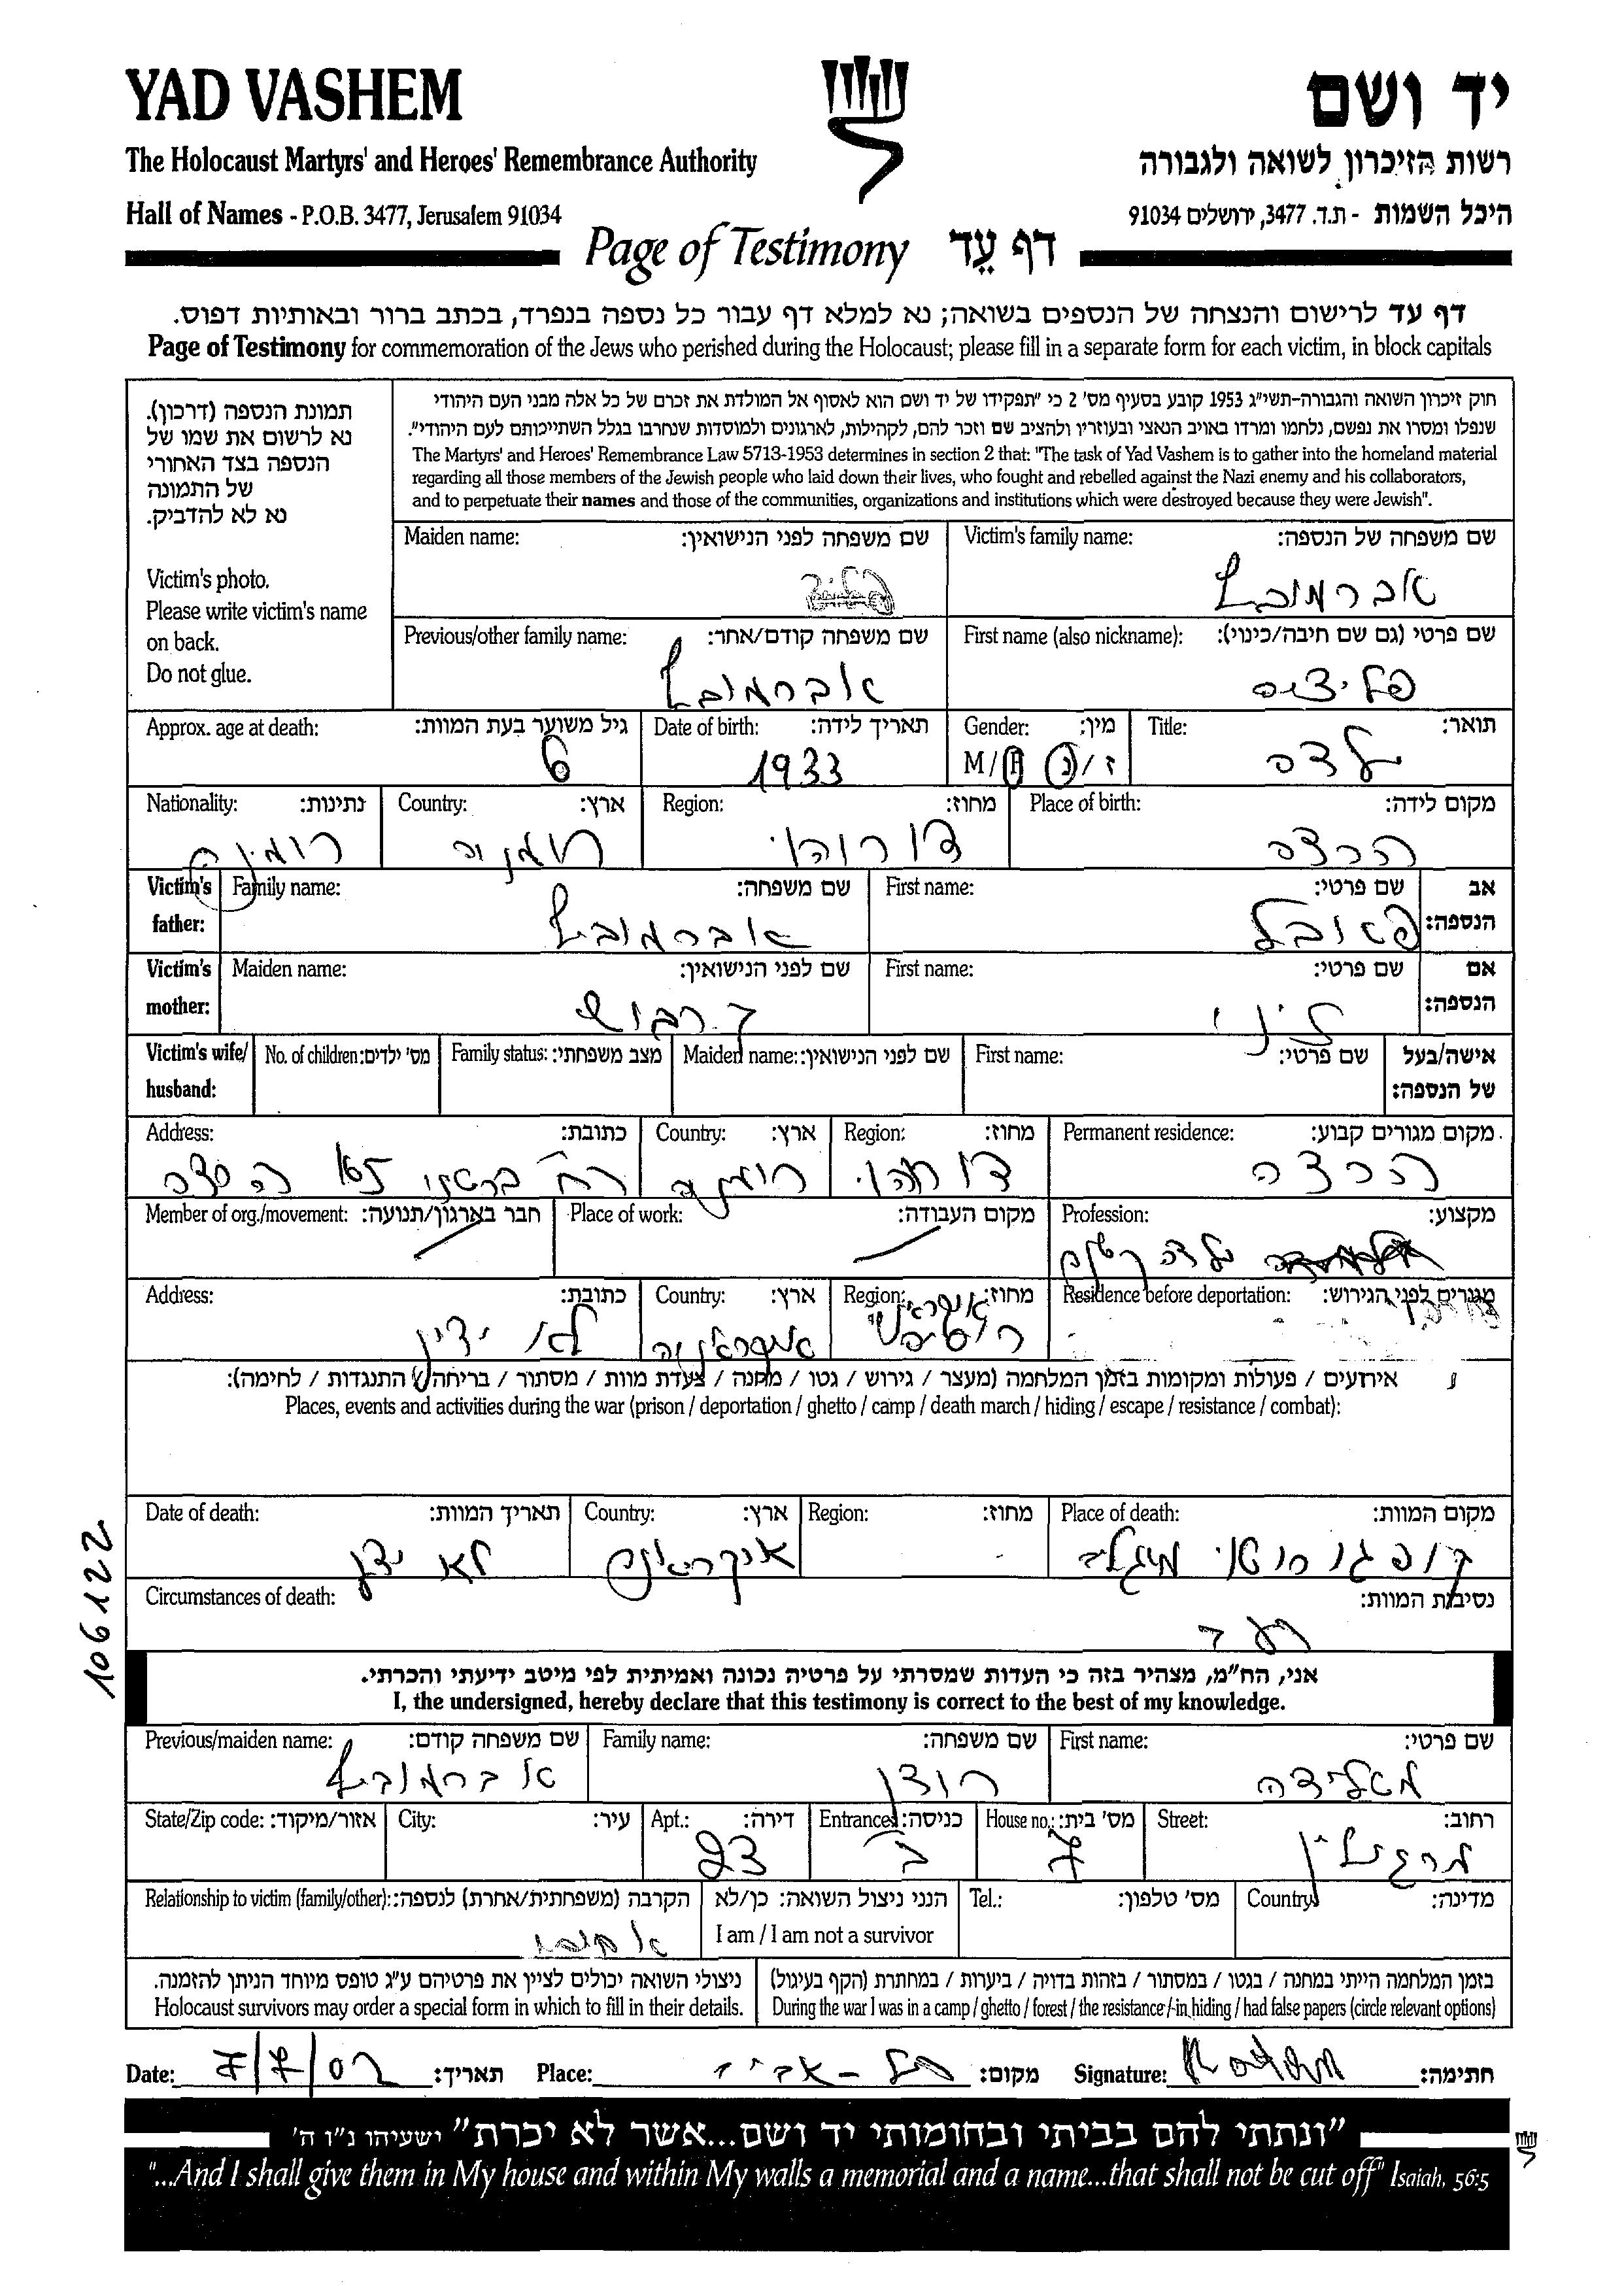 YAD VASHEM
יד ושם
The Holocaust Martyrs' and Heroes' Remembrance Authority
רשות הזיכרון לשואה ולגבורה
Hall of Names - P.O.B. 3477, Jerusalem 91034
היכל השמות - ת.ד. 3477, ירושלים 91034
Page of Testimony דף עֵד
דף עד לרישום והנצחה של הנספים בשואה; נא למלא דף עבור כל נספה בנפרד, בכתב ברור ובאותיות דפוס.
Page of Testimony for commemoration of the Jews who perished during the Holocaust; please fill in a separate form for each victim, in block capitals
תמונת הנספה (דרכון).
נא לרשום את שמו של
הנספה בצד האחורי
של התמונה
נא לא להדביק.
Victim's photo.
Please write victim's name
on back.
Do not glue.
חוק זיכרון השואה והגבורה-תשי"ג 1953 קובע בסעיף מס' 2 כי "תפקידו של יד ושם הוא לאסוף אל המולדת את זכרם של כל אלה מבני העם היהודי
שנפלו ומסרו את נפשם, נלחמו ומרדו באויב הנאצי ובעוזריו ולהציב שם וזכר להם, לקהילות, לארגונים ולמוסדות שנחרבו בגלל השתייכותם לעם היהודי".
The Martyrs' and Heroes' Remembrance Law 5713-1953 determines in section 2 that: "The task of Yad Vashem is to gather into the homeland material
regarding all those members of the Jewish people who laid down their lives, who fought and rebelled against the Nazi enemy and his collaborators,
and to perpetuate their names and those of the communities, organizations and institutions which were destroyed because they were Jewish".
Victim's family name: שם משפחה של הנספה:
אברמוביץ
Maiden name: שם משפחה לפני הנישואין:
First name (also nickname): שם פרטי (גם שם חיבה/כינוי):
פליציה
Previous/other family name: שם משפחה קודם/אחר:
אברמוביץ
Title: תואר:
ילדה
Gender: מין:
M / F ז / נ
Date of birth: תאריך לידה:
1933
Approx. age at death: גיל משוער בעת המוות:
6
Place of birth: מקום לידה:
הרצה
Region: מחוז:
דורוהוי
Country: ארץ:
רומניה
Nationality: נתינות:
רומניה
Victim's father: אב הנספה:
First name: שם פרטי:
פאובל
Family name: שם משפחה:
אברמוביץ
Victim's mother: אם הנספה:
First name: שם פרטי:
Maiden name: שם לפני הנישואין:
Victim's wife/ husband: אישה/בעל של הנספה:
First name: שם פרטי:
Maiden name: שם לפני הנישואין:
Family status: מצב משפחתי:
No. of children: מס' ילדים:
Permanent residence: מקום מגורים קבוע:
הרצה
Region: מחוז:
דורוהוי
Country: ארץ:
רומניה
Address: כתובת:
רח'
Profession: מקצוע:
ילדה קטנה
Place of work: מקום העבודה:
Member of org./movement: חבר בארגון/תנועה:
Residence before deportation: מגורים לפני הגירוש:
Region: מחוז:
Country: ארץ:
אוקראינה
Address: כתובת:
לא ידוע
אירועים / פעולות ומקומות בזמן המלחמה (מעצר / גירוש / גטו / מחנה / צעדת מוות / מסתור / בריחה / התנגדות / לחימה):
Places, events and activities during the war (prison / deportation / ghetto / camp / death march / hiding / escape / resistance / combat):
Place of death: מקום המוות:
Region: מחוז:
Country: ארץ:
אוקראינה
Date of death: תאריך המוות:
לא ידוע
Circumstances of death: נסיבות המוות:
רעב
106122
אני, הח"מ, מצהיר בזה כי העדות שמסרתי על פרטיה נכונה ואמיתית לפי מיטב ידיעתי והכרתי.
I, the undersigned, hereby declare that this testimony is correct to the best of my knowledge.
First name: שם פרטי:
מטילדה
Family name: שם משפחה:
רוזן
Previous/maiden name: שם משפחה קודם:
אברמוביץ
Street: רחוב:
מרגולין
House no.: מס' בית:
7
Entrance: כניסה:
ב
Apt.: דירה:
23
City: עיר:
State/Zip code: אזור/מיקוד:
Country: מדינה:
Tel.: מס' טלפון:
הנני ניצול השואה: כן/לא
I am / I am not a survivor
Relationship to victim (family/other): הקרבה (משפחתית/אחרת) לנספה:
אחותי
בזמן המלחמה הייתי במחנה / בגטו / במסתור / בזהות בדויה / ביערות / במחתרת (הקף בעיגול)
During the war I was in a camp / ghetto / forest / the resistance / in hiding / had false papers (circle relevant options)
ניצולי השואה יכולים לציין את פרטיהם ע"ג טופס מיוחד הניתן להזמנה.
Holocaust survivors may order a special form in which to fill in their details.
Date: 7/7/02 תאריך: Place: תל-אביב מקום: Signature: חתימה:
"ונתתי להם בביתי ובחומותי יד ושם...אשר לא יכרת" ישעיהו נ"ו ה'
"...And I shall give them in My house and within My walls a memorial and a name...that shall not be cut off" Isaiah, 56:5